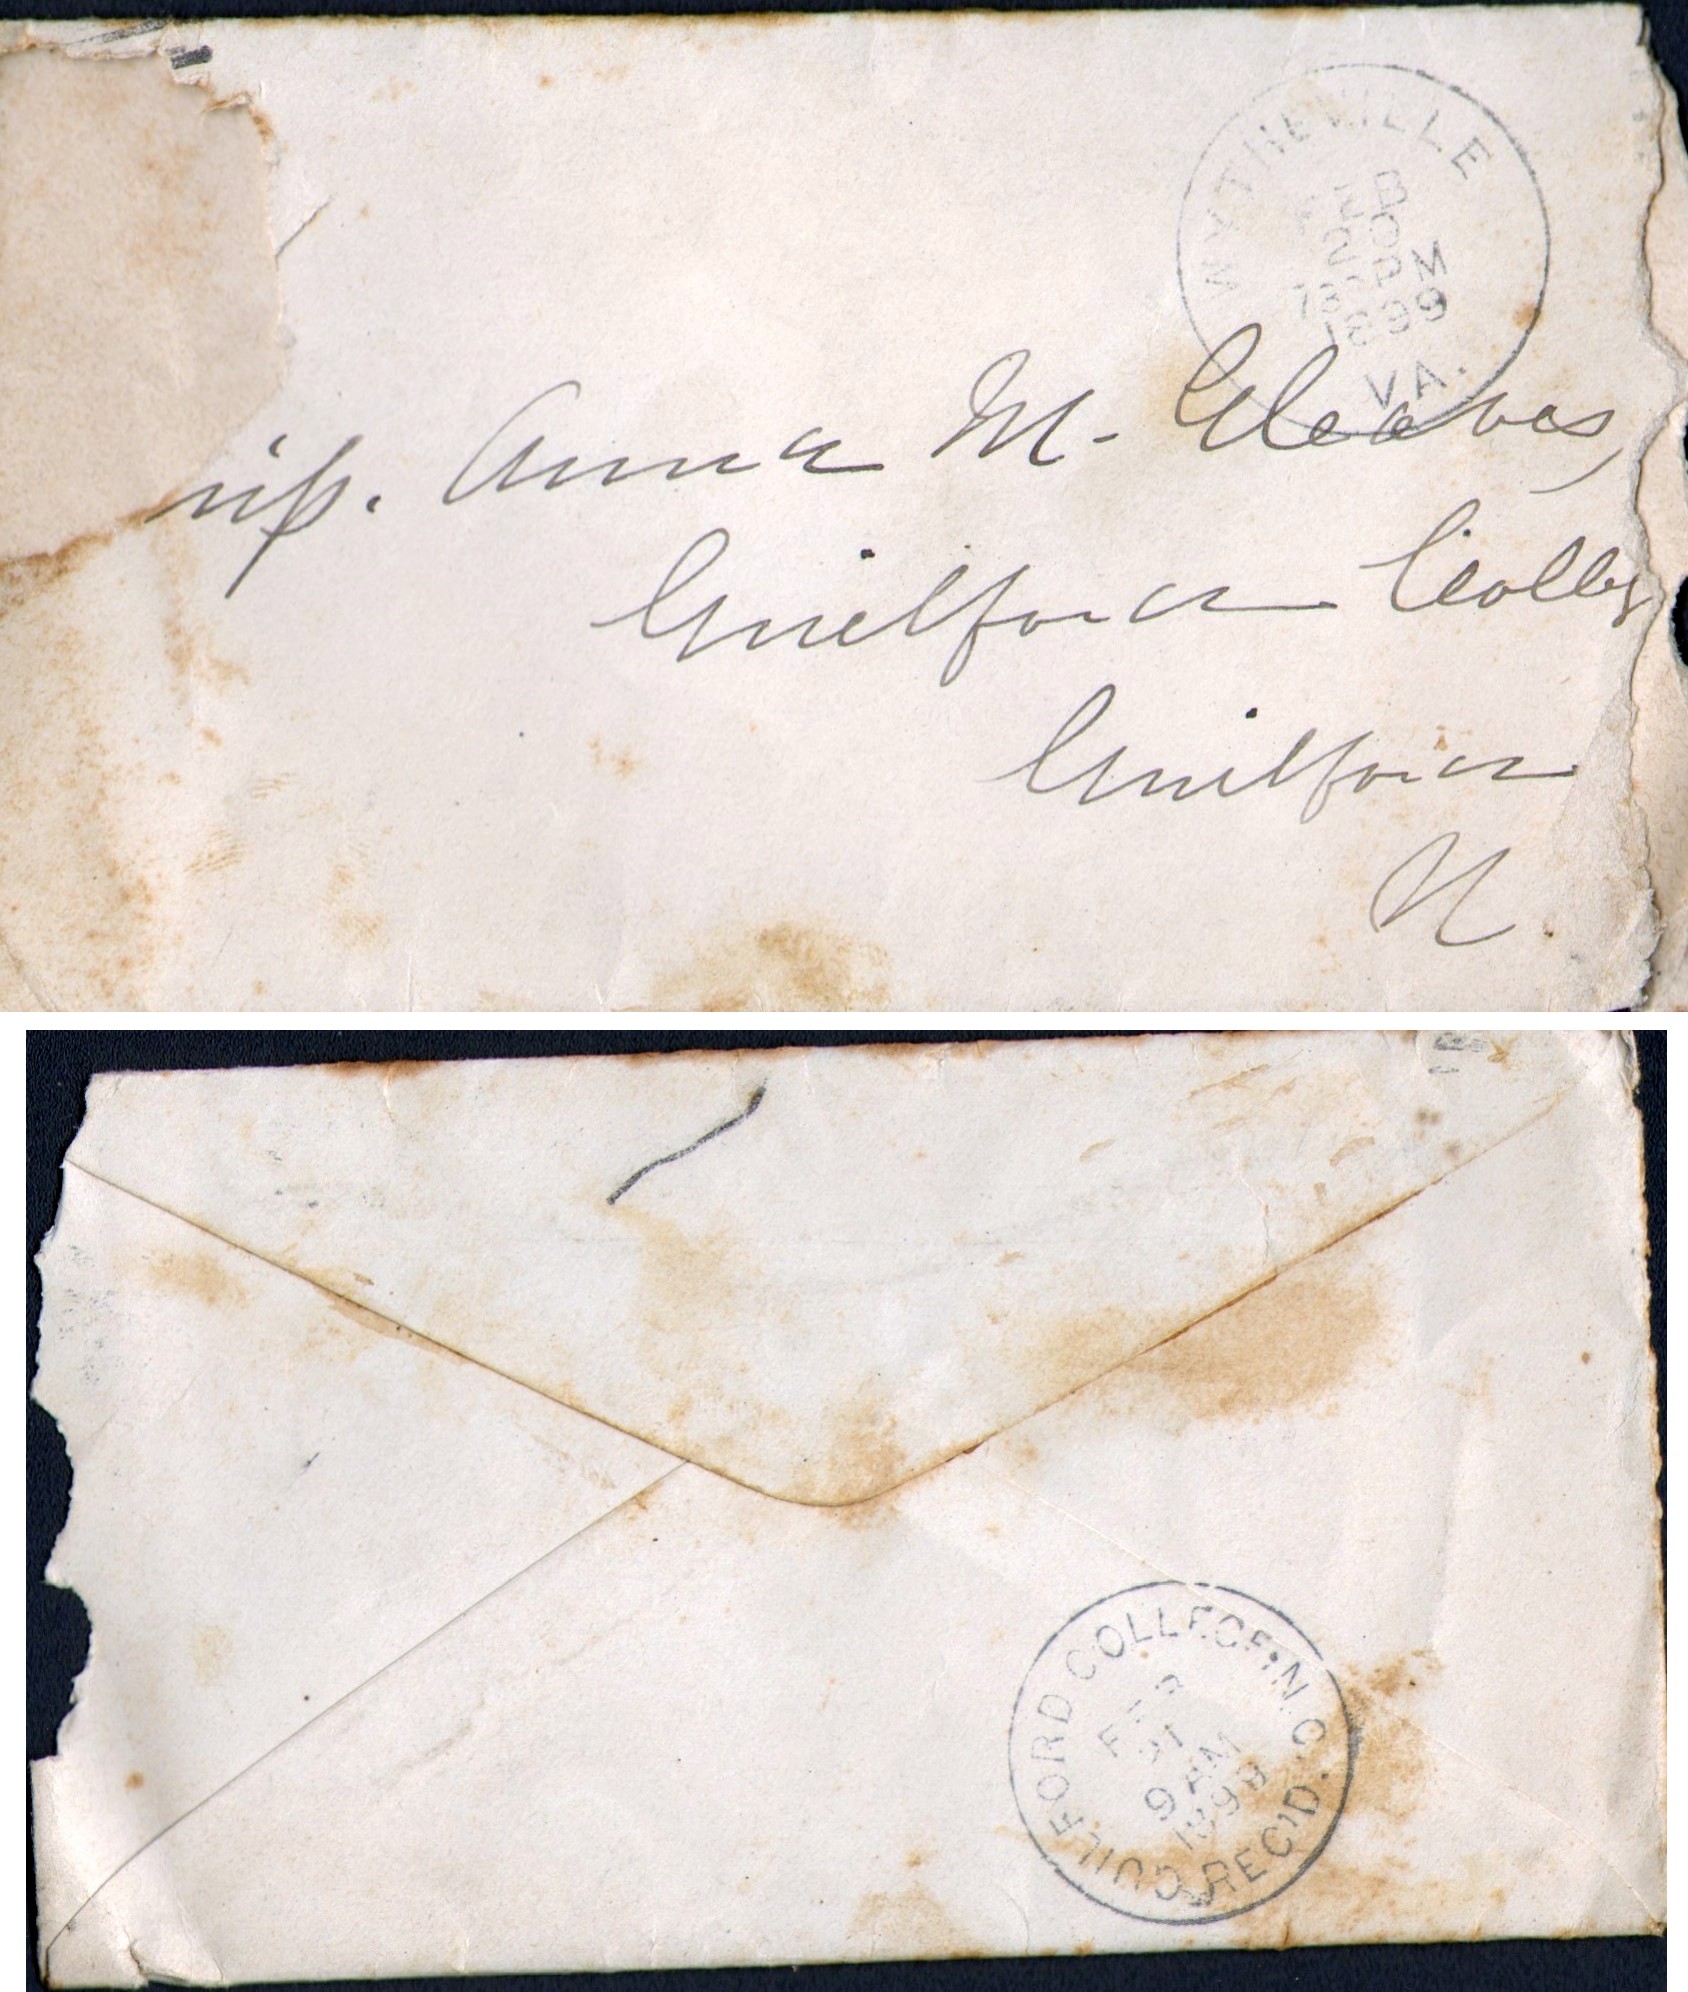 WYTHEVILLE
VA.
1899
Miss. Anna M. Gleaves,
Guilford Colleg
Guilford
N.
GUILFORD COLLEGE N.C.
FEB
21
9 AM
1899
REC'D.